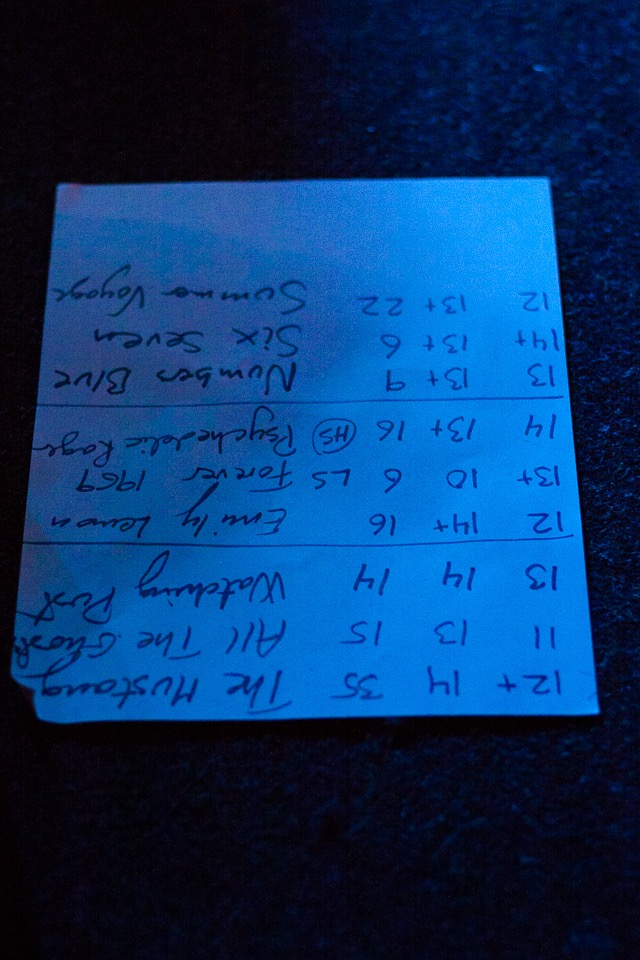 12+ 14 35 The Mustang
11 13 15 All The Ghosts
13 14 14 Watching
12 14+ 16 Emily Lemon
13+ 10 6 LS Forever 1969
14 13+ 16 HS Psychedelic Rage
13 13+ 9 Numbers Blue
14+ 13+ 6 Six Seven
12 13+ 22 Summer Voyage